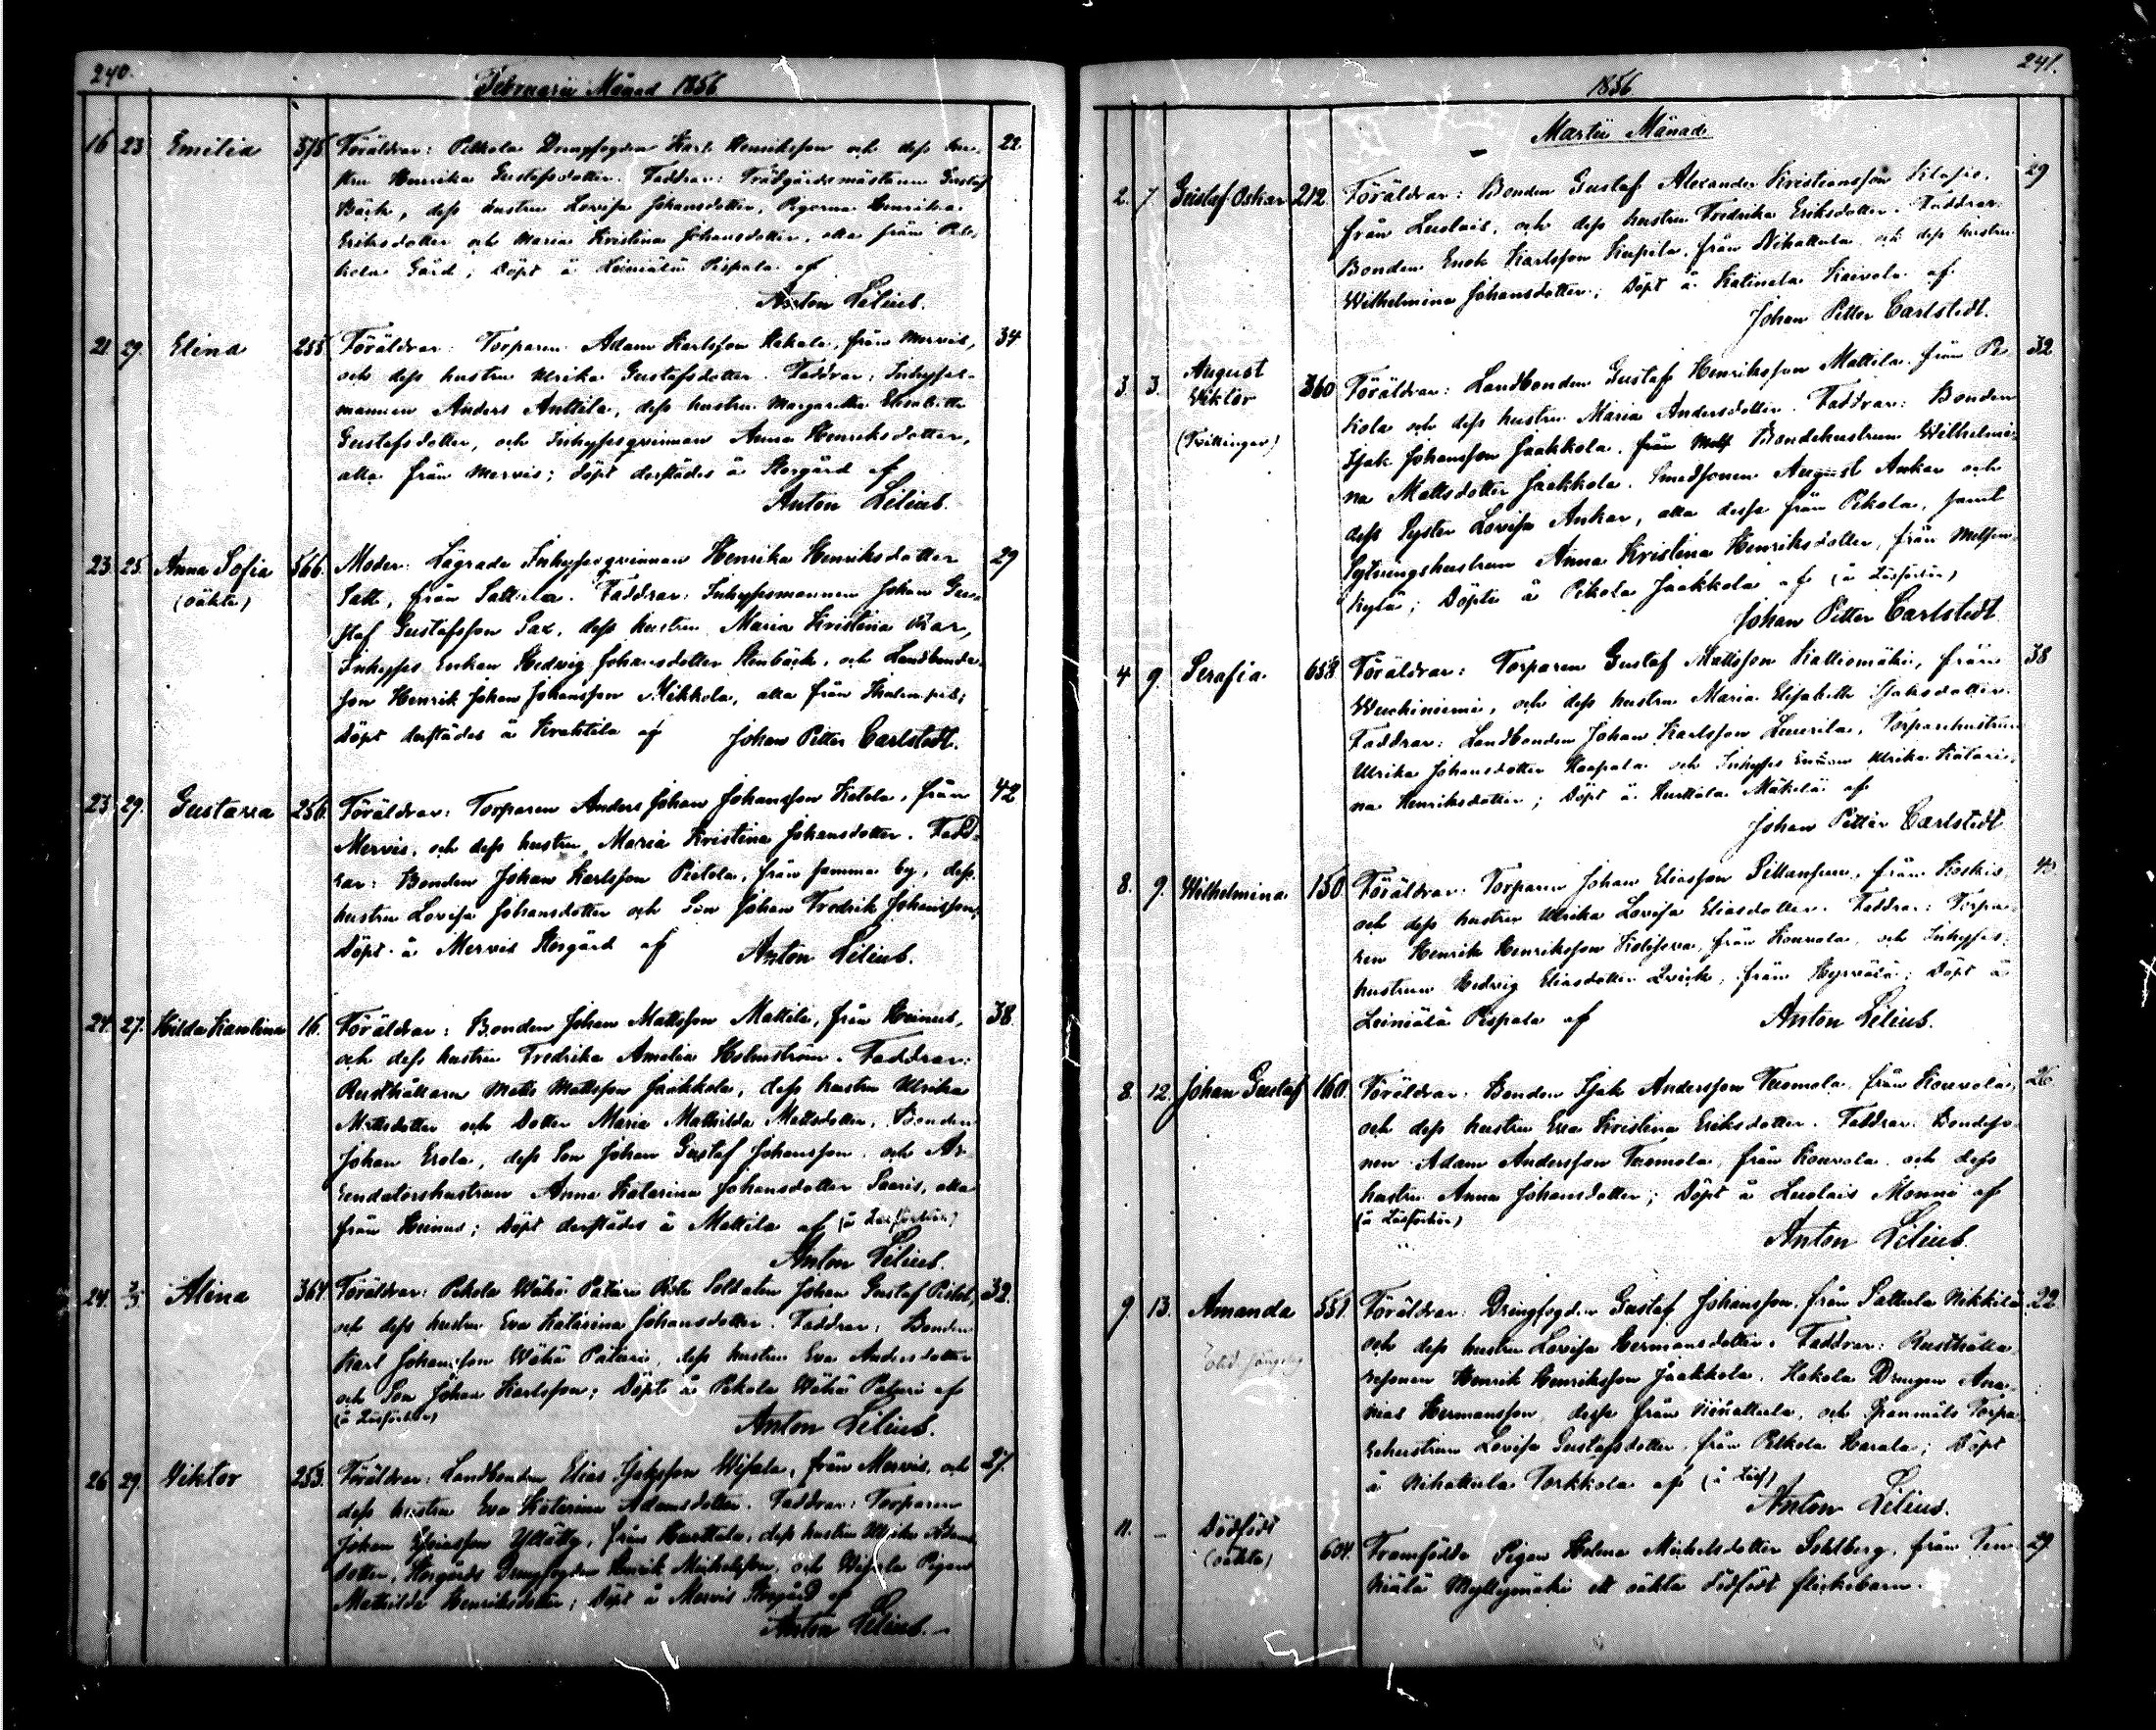 240.
Februarii Månad 1856
16 23 Emilia 578 Föräldrar: Pelkola Drengfogden Karl Henriksson och dess hu- 22
stru Henrika Gustafsdotter. Faddrar: Trädgårdsmästaren Gustaf
Bäck, dess hustru Lovisa Johansdotter, Pigorna Henrika
Eriksdotter och Maria Kristina Johansdotter, alla från Pel-
kola Gård; Döpt å Leiniälä Pispala af
Anton Lilius.
21 29. Elina 255 Föräldrar: Torparen Adam Karlsson Hakala, från Mervis, 34
och dess hustru Ulrika Gustafsdotter. Faddrar: Inhyses-
mannen Anders Anttila, dess hustru Margaretha Elisabeth
Gustafsdotter, och Inhysesqvinnan Anna Henriksdotter,
alla från Mervis; döpt derstädes å Storgård af
Anton Lilius.
23. 25. Anna Sofia 566. Moder: Lägrade Inhysesqvinnan Henrika Henriksdotter 29
(oäkta) Satt, från Sattula. Faddrar: Inhysesmannen Johan Gu-
staf Gustafsson Sax, dess hustru Maria Kristina
Inhyses Enkan Hedvig Johansdotter Stenbäck, och Landbonde-
son Henrik Johan Johansson Mikkola, alla från
Döpt derstädes å Krahtila af Johan Petter Carlstedt.
23 29. Gustava 256. Föräldrar: Torparen Anders Johan Johansson Katela, från 42
Mervis, och dess hustru Maria Kristina Johansdotter. Fadd-
rar: Bonden Johan Karlsson Pietola, från samma by, dess
hustru Lovisa Johansdotter och Son Johan Fredrik Johansson,
Döpt å Mervis Storgård af Anton Lilius.
24. 27. Hilda Karolina 16. Föräldrar: Bonden Johan Mattsson Mattila, från Heinus, 38.
och dess hustru Fredrika Amalia Holmström. Faddrar:
Rusthållaren Matts Mattsson Jaakkola, dess hustru Ulrika
Mattsdotter och Dotter Maria Mathilda Mattsdotter, Bonden
Johan Erola, dess Son Johan Gustaf Johansson, och Ar-
rendatorshustrun Anna Katarina Johansdotter Saaris, alla
från Heinus; Döpt derstädes å Mattila af (å Läsförhör)
Anton Lilius.
24. 2/3 Alina 364. Föräldrar: Pekola Wähä Pätiari Rote Soldaten Johan Gustaf Pistol, 32.
och dess hustru Eva Katarina Johansdotter. Faddrar: Bonden
Karl Johansson Wähä Pätiari, dess hustru Eva Andersdotter
och Son Johan Karlsson; Döpt å Pekola Wähä Pätiari af
(å Läsförhör)
Anton Lilius.
26 29. Viktor 253. Föräldrar: Landbonden Elias Isaksson Wisala, från Mervis, och 27.
dess hustru Eva Katarina Adamsdotter. Faddrar: Torparen
Johan Yllätty, från Hurttala, dess hustru Ulrika Adams-
dotter, Storgårds Drengfogden Henrik Michelsson, och Wisala Pigan
Mathilda Henriksdotter; Döpt å Mervis Storgård af
Anton Lilius.
241.
1856
Martii Månad
2. 7. Gustaf Oskar 212 Föräldrar: Bonden Gustaf Alexander Kristiansson 29
från Luolais, och dess hustru Fredrika Eriksdotter. Faddrar:
Bonden Enok Karlsson Kupila, från Nihattula, och dess hustru
Wilhelmina Johansdotter; Döpt å Katinala Kaivola af
Johan Petter Carlstedt.
3. 3. August Viktor (Tvillingar) 360 Föräldrar: Landbonden Gustaf Henriksson Mattila från Pe- 32
kola och dess hustru Maria Andersdotter. Faddrar: Bonden
Isak Johansson Jaakkola, från Bondehustrun Wilhelmi-
na Mattsdotter Jaakkola, Smedsonen August Ankar och
dess Syster Lovisa Ankar, alla desse från Pekola, samt
Sytningshustrun Anna Kristina Henriksdotter, från
kylä; Döpte å Pekola Jaakkola af (å Läsförhör)
Johan Petter Carlstedt
4 9. Serafia 658 Föräldrar: Torparen Gustaf Mattsson Kalliomäki, från 38
Wuohiniemi, och dess hustru Maria Elisabeth Isaksdotter.
Faddrar: Landbonden Johan Karlsson Laurila, Torparehustrun
Ulrika Johansdotter Haapala och Inhyses Enkan Ulrika Katari-
na Henriksdotter; Döpt å Hurttala Mäkelä af
Johan Petter Carlstedt
8. 9. Wilhelmina 150 Föräldrar: Torparen Johan Eliasson Sillansuu, från Koskis, 40
och dess hustru Ulrika Lovisa Eliasdotter. Faddrar: Torpa-
ren Henrik Henriksson från Kouvola, och Inhyses-
hustrun Hedvig Eliasdotter Qvick, från Hyrvälä; Döpt å
Leiniälä Pispala af Anton Lilius.
8. 12. Johan Gustaf 160. Föräldrar: Bonden Isak Andersson Tuomola, från Kouvola, 26
och dess hustru Eva Kristina Eriksdotter. Faddrar: Bondeso-
nen Adam Andersson Tuomola, från Kouvola, och dess
hustru Anna Johansdotter; Döpt å Luolais Monni af
(å Läsförhör)
Anton Lilius.
9. 13. Amanda 551. Föräldrar: Drengfogden Gustaf Johansson, från Sattula Nikkilä 22
och dess hustru Lovisa Hermansdotter. Faddrar: Rusthålla-
resonen Henrik Henriksson Jaakkola, Hakola Drengen Ana-
nias Hermansson, desse från Nihattula, och Torpa-
rehustrun Lovisa Gustafsdotter, från Pelkola Harala; Döpt
å Nihattula Torkkola af (å Läsf)
Anton Lilius.
11. – Dödfödt (oäkta) 604. Framfödde Pigan Helena Michelsdotter Sohlberg, från Len- 29
niälä Myllymäki ett oäkta dödfödt flickebarn.